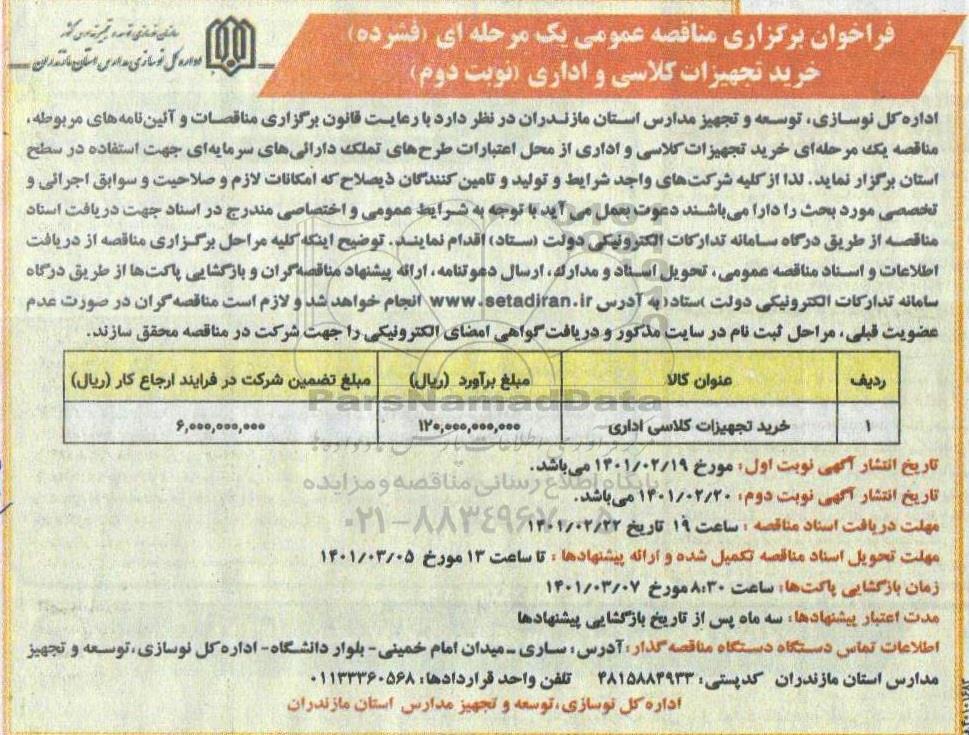 سازمان نوسازی، توسعه و تجهیز مدارس کشور
اداره کل نوسازی مدارس استان مازندران
فراخوان برگزاری مناقصه عمومی یک مرحله ای (فشرده)
خرید تجهیزات کلاسی و اداری (نوبت دوم)
اداره کل نوسازی، توسعه و تجهیز مدارس استان مازندران در نظر دارد با رعایت قانون برگزاری مناقصات و آئین‌نامه‌های مربوطه،
مناقصه یک مرحله‌ای خرید تجهیزات کلاسی و اداری از محل اعتبارات طرح‌های تملک دارائی‌های سرمایه‌ای جهت استفاده در سطح
استان برگزار نماید. لذا از کلیه شرکت‌های واجد شرایط و تولید و تامین کنندگان ذیصلاح که امکانات لازم و صلاحیت و سوابق اجرائی و
تخصصی مورد بحث را دارا می‌باشند دعوت بعمل می آید با توجه به شرایط عمومی و اختصاصی مندرج در اسناد جهت دریافت اسناد
مناقصه از طریق درگاه سامانه تدارکات الکترونیکی دولت (ستاد) اقدام نمایند. توضیح اینکه کلیه مراحل برگزاری مناقصه از دریافت
اطلاعات و اسناد مناقصه عمومی، تحویل اسناد و مدارک، ارسال دعوتنامه، ارائه پیشنهاد مناقصه‌گران و بازگشایی پاکت‌ها از طریق درگاه
سامانه تدارکات الکترونیکی دولت )ستاد( به آدرس www.setadiran.ir انجام خواهد شد و لازم است مناقصه گران در صورت عدم
عضویت قبلی، مراحل ثبت نام در سایت مذکور و دریافت گواهی امضای الکترونیکی را جهت شرکت در مناقصه محقق سازند.
ردیف عنوان کالا مبلغ برآورد (ریال) مبلغ تضمین شرکت در فرایند ارجاع کار (ریال)
۱ خرید تجهیزات کلاسی اداری ۱۲۰,۰۰۰,۰۰۰,۰۰۰ ۶,۰۰۰,۰۰۰,۰۰۰
ParsNamadData
پایگاه اطلاع رسانی مناقصه و مزایده
تاریخ انتشار آگهی نوبت اول: مورخ ۱۴۰۱/۰۲/۱۹ می‌باشد.
تاریخ انتشار آگهی نوبت دوم: ۱۴۰۱/۰۲/۲۰ می‌باشد.
مهلت دریافت اسناد مناقصه : ساعت ۱۹ تاریخ ۱۴۰۱/۰۲/۲۲
مهلت تحویل اسناد مناقصه تکمیل شده و ارائه پیشنهادها : تا ساعت ۱۳ مورخ ۱۴۰۱/۰۳/۰۵
زمان بازگشایی پاکت‌ها: ساعت ۸:۳۰ مورخ ۱۴۰۱/۰۳/۰۷
مدت اعتبار پیشنهادها: سه ماه پس از تاریخ بازگشایی پیشنهادها
اطلاعات تماس دستگاه دستگاه مناقصه گذار: آدرس: ساری - میدان امام خمینی- بلوار دانشگاه- اداره کل نوسازی، توسعه و تجهیز
مدارس استان مازندران کدپستی: ۴۸۱۵۸۸۴۹۳۳ تلفن واحد قراردادها: ۰۱۱۳۳۳۶۰۵۶۸
اداره کل نوسازی، توسعه و تجهیز مدارس استان مازندران